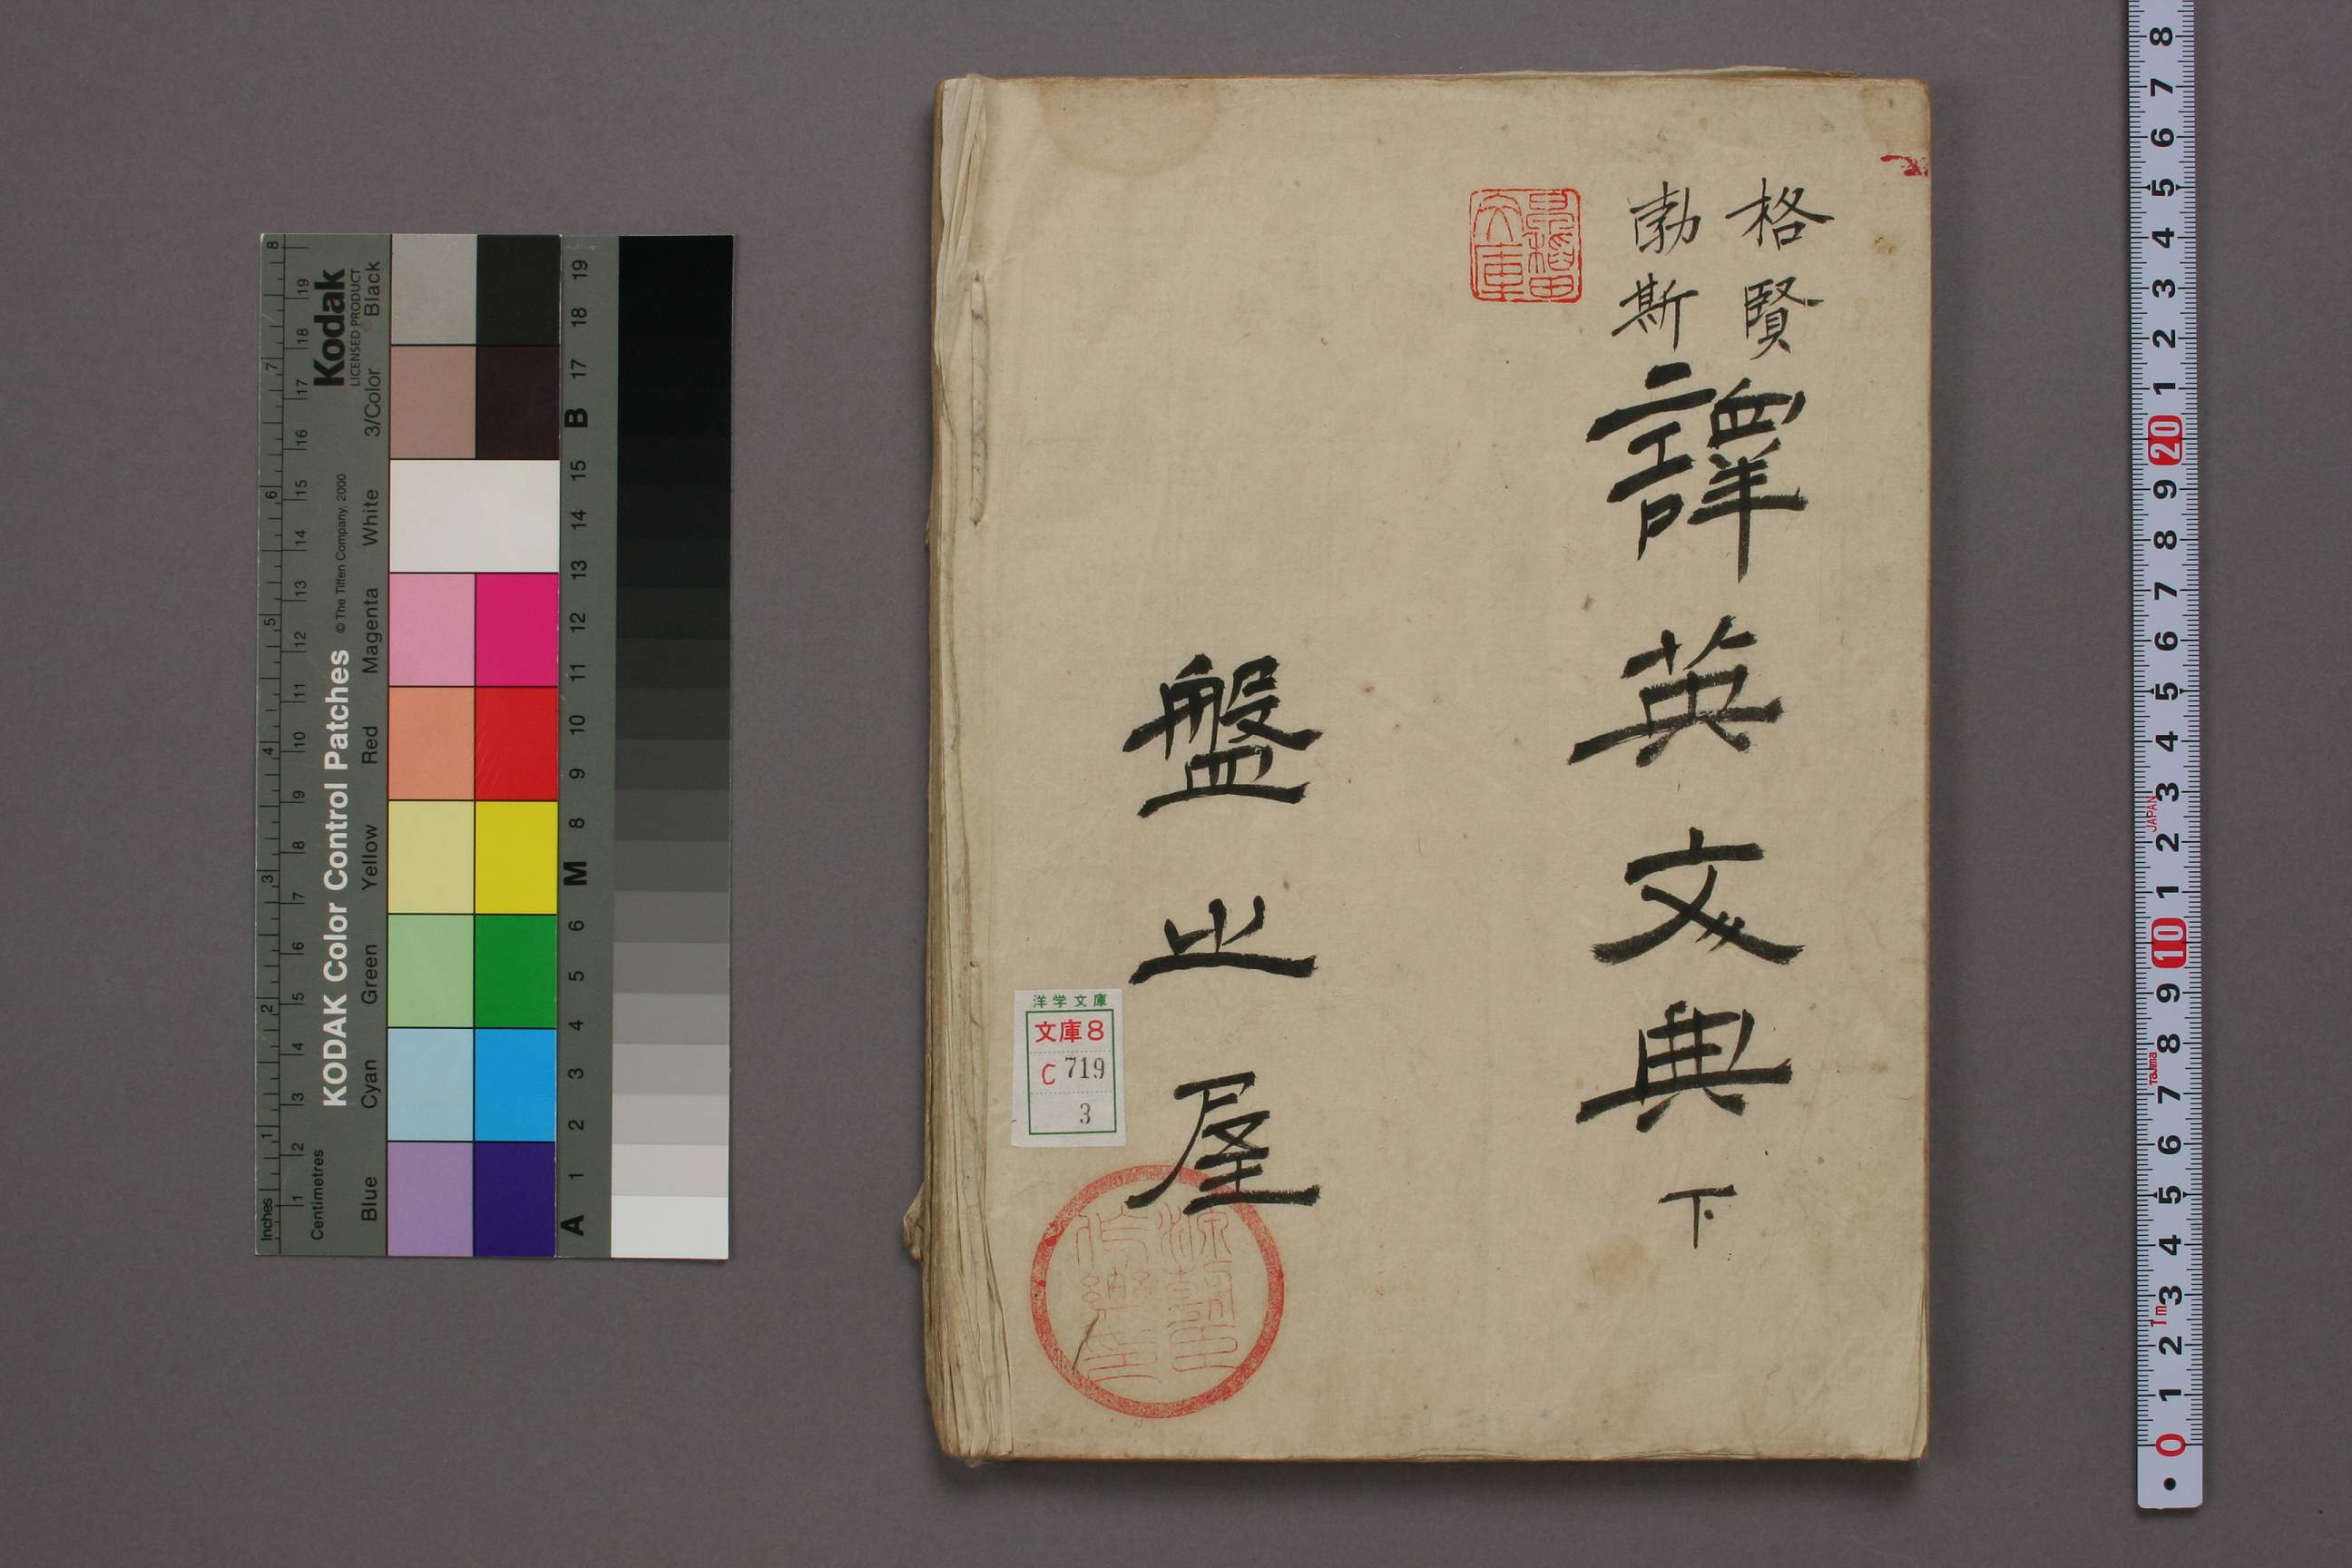 格賢
勃斯
譯英文典 下
盤止屋
洋学文庫
文庫8
C 719
3
Kodak
LICENSED PRODUCT
KODAK Color Control Patches
© The Tiffen Company, 2000
Black
3/Color
White
Magenta
Red
Yellow
Green
Cyan
Blue
Inches
1 2 3 4 5 6 7 8
Centimetres
1 2 3 4 5 6 7 8 9 10 11 12 13 14 15 16 17 18 19
A 1 2 3 4 5 6 M 8 9 10 11 12 13 14 15 B 17 18 19
8 7 6 5 4 3 2 1 20 9 8 7 6 5 4 3 2 1 10 9 8 7 6 5 4 3 2 1 0
JAPAN
Tajima
1m